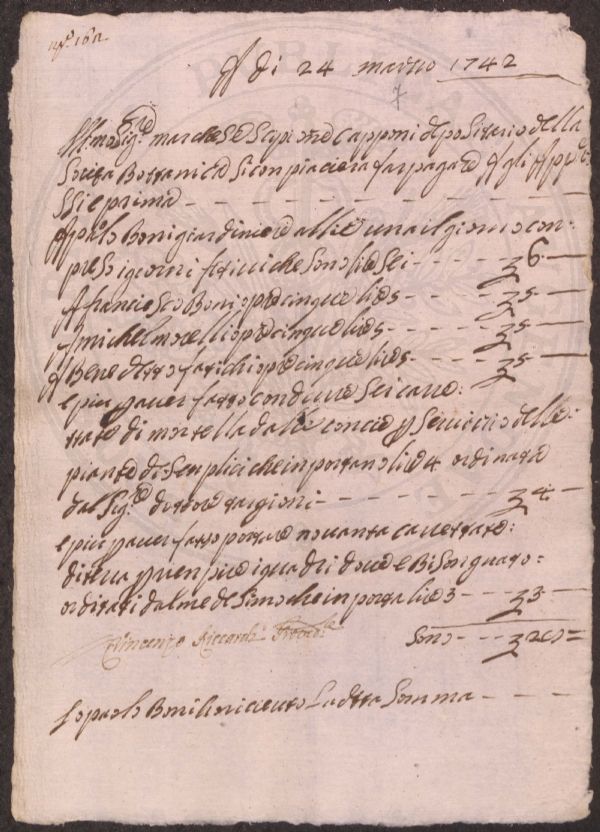 A di 24 marzo 1742
Ill.mo Sig.re marchese Scipione Capponi depositario della
Societa Bottanica si compiaciera far pagare Agli Appre:
ssi e prima
A paolo Boni giardiniere a llire una il giorno con:
preso i giorni festivi che sono lire sei 6
A francesco Boni opre cinque lire 5 5
A michel morelli opre cinque lire 5 5
A Benedetto fatichi opre cinque lire 5 5
e piu p aver fatto condurre sei care:
ttate di mortella dalle concie p Servizio delle:
piante di Semplici che inportano lire 4 ordinate
dal Sig.re dottore targioni 4
e piu p aver fatto portare novanta carrettate:
di terra p rienpire i quadri dove e Bisogniato:
orditati dal medesimo che inporta lire 3 3
Vincenzo Riccardi Provved.
Sono 28
Io paolo Boni o riceuto La detta Somma